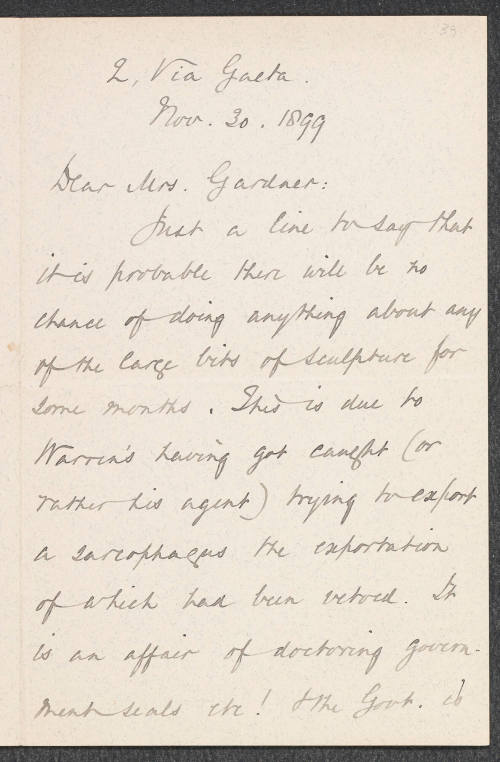 39
2, Via Gaeta.
Nov. 30. 1899
Dear Mrs. Gardner:
Just a line to say that
it is probable there will be no
chance of doing anything about any
of the large bits of sculpture for
some months. This is due to
Warren's having got caught (or
rather his agent) trying to export
a sarcophagus the exportation
of which had been vetoed. It
is an affair of doctoring govern-
ment seals etc! & the Govt. is